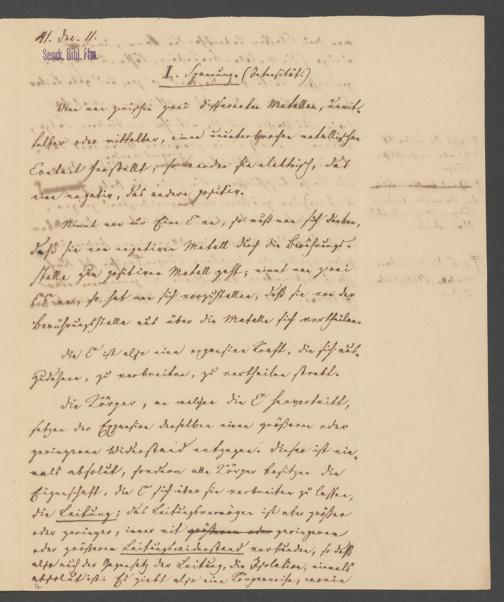 41. Dec. 11.
Senck. Bibl. Ffm.
I. Spannung (Intensität.)
Wenn man zwischen zwei differenten Metallen, unmit-
telbar oder mittelbar, einen ununterbrochen metallischen
Contact herstellt, so werden sie elektrisch, das
eine negativ, das andere positiv.
Nimmt man nur Eine E an, so muß man sich denken,
daß sie vom negativen Metall durch die Berührungs-
stelle zum positiven Metall geht; nimmt man zwei
EE an, so hat man sich vorzustellen, daß sie von der
Berührungsstelle aus über die Metalle sich vertheilen.
Die E ist also eine expansive Kraft, die sich aus-
zudehnen, zu verbreiten, zu vertheilen strebt.
Die Körper, an welchen die E hervortritt,
setzen der Expansion derselben einen größeren oder
geringeren Widerstand entgegen. Dieser ist nie-
mals absolut, sondern alle Körper besitzen die
Eigenschaft, die E sich über sie verbreiten zu lassen,
die Leitung; das Leitungsvermögen ist aber größer
oder geringer, immer mit größerem oder geringerem
oder größerem Leitungswiderstand verbunden, so daß
also auch der Gegensatz der Leitung, die Isolation, niemals
absolut ist. Es giebt also eine Körperreihe, worin